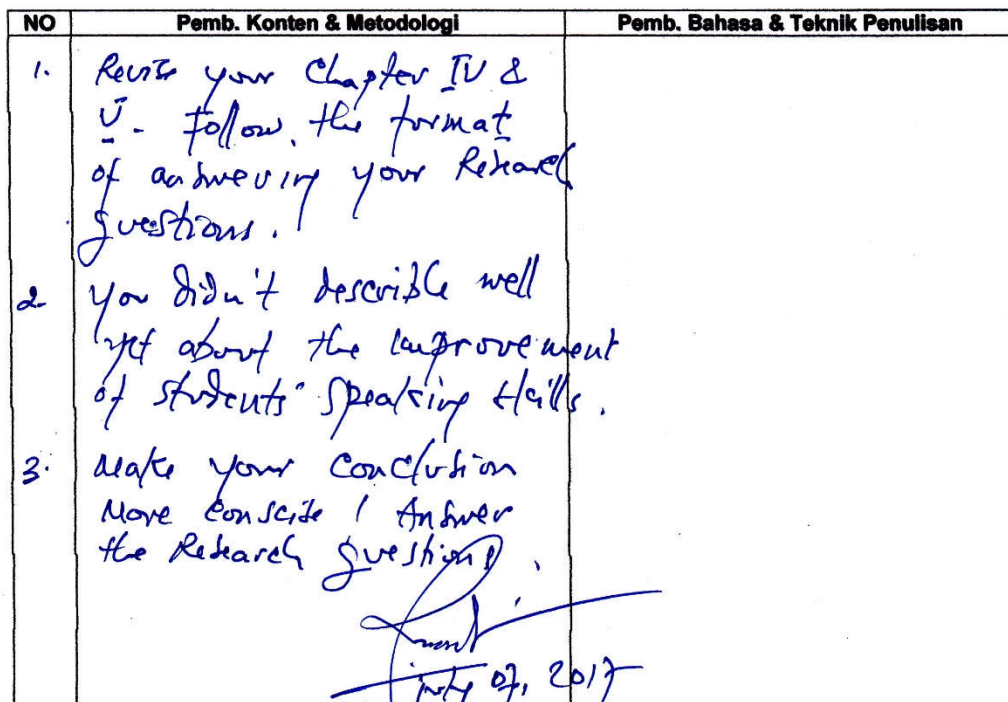 NO Pemb. Konten & Metodologi Pemb. Bahasa & Teknik Penulisan
1. Revise your Chapter IV &
V. Follow the format
of answering your Research
questions.
2. You didn't describle well
yet about the improvement
of students' speaking skills.
3. Make your conclusion
More conscise / Answer
the Research questions.
July 07, 2017